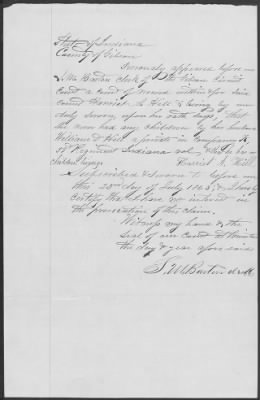 State of Indiana
County of Gibson
Personally appeared before me
Clerk of the Gibson Circuit
Court a court of record within & for said
county Harriet A. Hill & being by me
duly sworn, upon her oath says that
she now has any children by her husband
William D Hill a private in company K,
58 Regiment Indiana vol.
Harriet A. Hill
Subscribed & sworn to before me
this 25th day of July & I hereby
certify that I have no interest in
the prosecution of this claim.
Witness my hand & the
seal of our Court at
the day & year afore said
Clerk